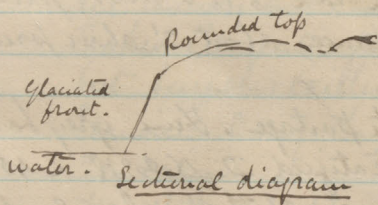 Rounded top
Glaciated
front.
water.
Sectional diagram